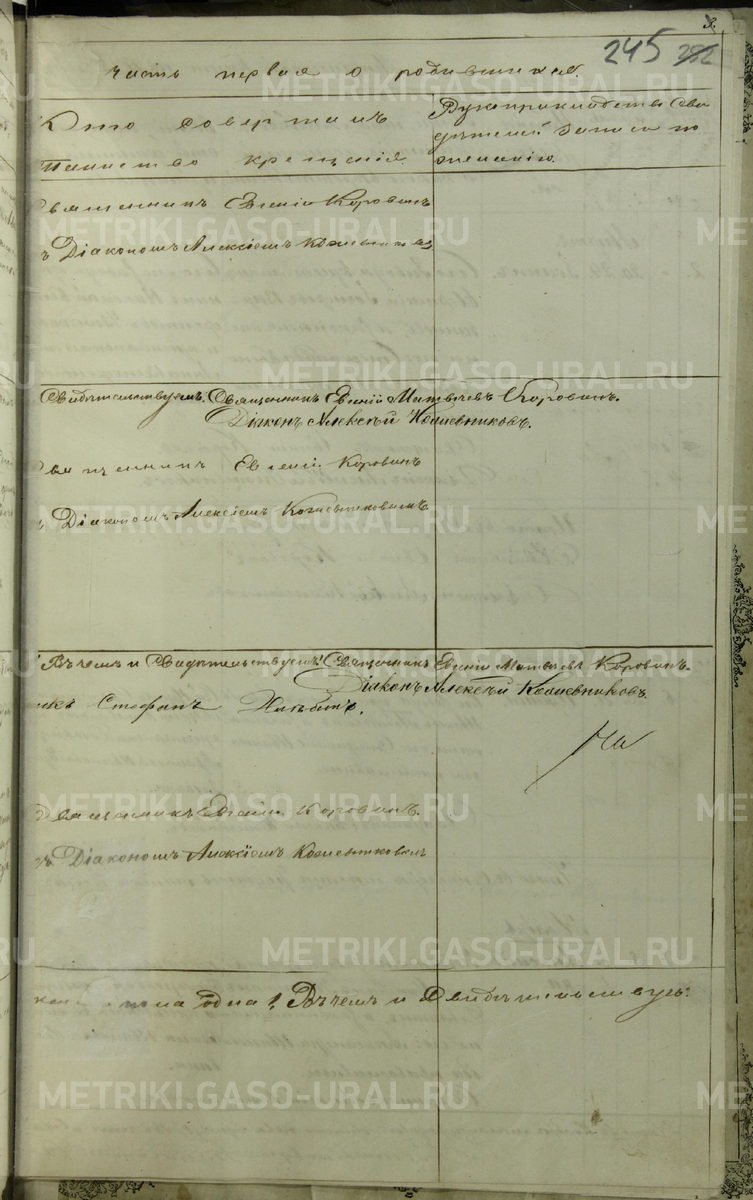 245 282
Часть первая о родившихся.
Кто совершалъ
Таинство крещенія.
Рукоприкладство сви
дѣтелей записи по
желанію.
Священникъ Евгеній Коровинъ
съ Діакономъ Алексіемъ Кожевниковымъ
Свидѣтельствуемъ: Священникъ Евгеній Матвѣевъ Коровинъ.
Діаконъ Алексѣй Кожевниковъ.
Священникъ Евгеній Коровинъ
съ Діакономъ Алексіемъ Кожевниковымъ
Въ чемъ и Свидѣтельствуемъ: Священникъ Евгеній Матвѣевъ Коровинъ.
Діаконъ Алексѣй Кожевниковъ.
Стефанъ
Священникъ Евгеній Коровинъ.
съ Діакономъ Алексіемъ Кожевниковымъ
одна 1, Въ чемъ и Свидѣтельствуемъ:
METRIKI.GASO-URAL.RU